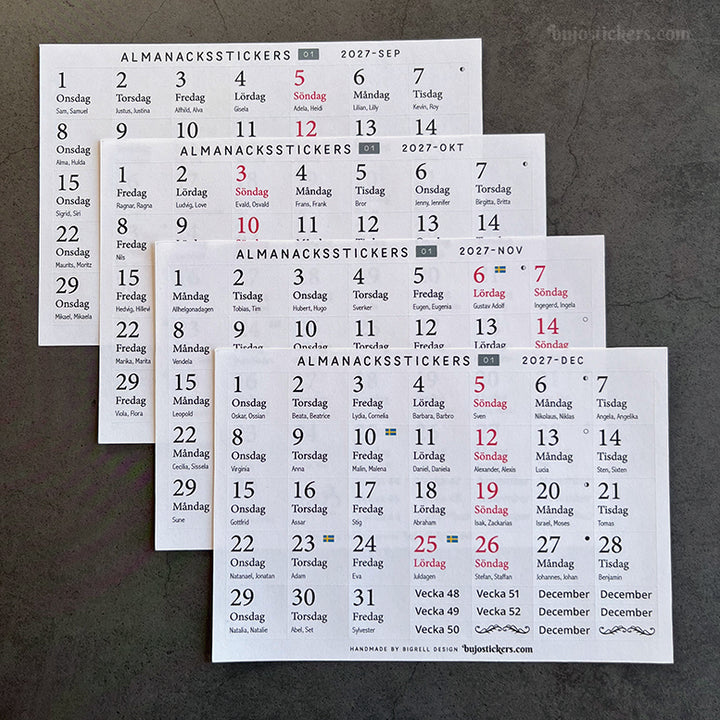 bujostickers.com
ALMANACKSSTICKERS 01 2027-SEP
1 2 3 4 5 6 7
Onsdag Torsdag Fredag Lördag Söndag Måndag Tisdag
Sam, Samuel Justus, Justina Alfhild, Alva Gisela Adela, Heidi Lilian, Lilly Kevin, Roy
8 9 10 11 12 13 14
Onsdag
Alma, Hulda
15
Onsdag
Sigrid, Siri
22
Onsdag
Maurits, Moritz
29
Onsdag
Mikael, Mikaela
ALMANACKSSTICKERS 01 2027-OKT
1 2 3 4 5 6 7
Fredag Lördag Söndag Måndag Tisdag Onsdag Torsdag
Ragnar, Ragna Ludvig, Love Evald, Osvald Frans, Frank Bror Jenny, Jennifer Birgitta, Britta
8 9 10 11 12 13 14
Fredag
Nils
15
Fredag
Hedvig,
22
Fredag
Marika, Marita
29
Fredag
Viola, Flora
ALMANACKSSTICKERS 01 2027-NOV
1 2 3 4 5 6 7
Måndag Tisdag Onsdag Torsdag Fredag Lördag Söndag
Allhelgonadagen Tobias, Tim Hubert, Hugo Sverker Eugen, Eugenia Gustav Adolf Ingegerd, Ingela
8 9 10 11 12 13 14
Måndag Tisdag Onsdag Torsdag Fredag Lördag Söndag
Vendela
15
Måndag
Leopold
22
Måndag
Cecilia, Sissela
29
Måndag
Sune
ALMANACKSSTICKERS 01 2027-DEC
1 2 3 4 5 6 7
Onsdag Torsdag Fredag Lördag Söndag Måndag Tisdag
Oskar, Ossian Beata, Beatrice Lydia, Cornelia Barbara, Barbro Sven Nikolaus, Niklas Angela, Angelika
8 9 10 11 12 13 14
Onsdag Torsdag Fredag Lördag Söndag Måndag Tisdag
Virginia Anna Malin, Malena Daniel, Daniela Alexander, Alexis Lucia Sten, Sixten
15 16 17 18 19 20 21
Onsdag Torsdag Fredag Lördag Söndag Måndag Tisdag
Gottfrid Assar Stig Abraham Isak, Zackarias Israel, Moses Tomas
22 23 24 25 26 27 28
Onsdag Torsdag Fredag Lördag Söndag Måndag Tisdag
Natanael, Jonatan Adam Eva Juldagen Stefan, Staffan Johannes, Johan Benjamin
29 30 31 Vecka 48 Vecka 51 December December
Onsdag Torsdag Fredag Vecka 49 Vecka 52 December December
Natalia, Natalie Abel, Set Sylvester Vecka 50 December
HANDMADE BY BIGRELL DESIGN bujostickers.com